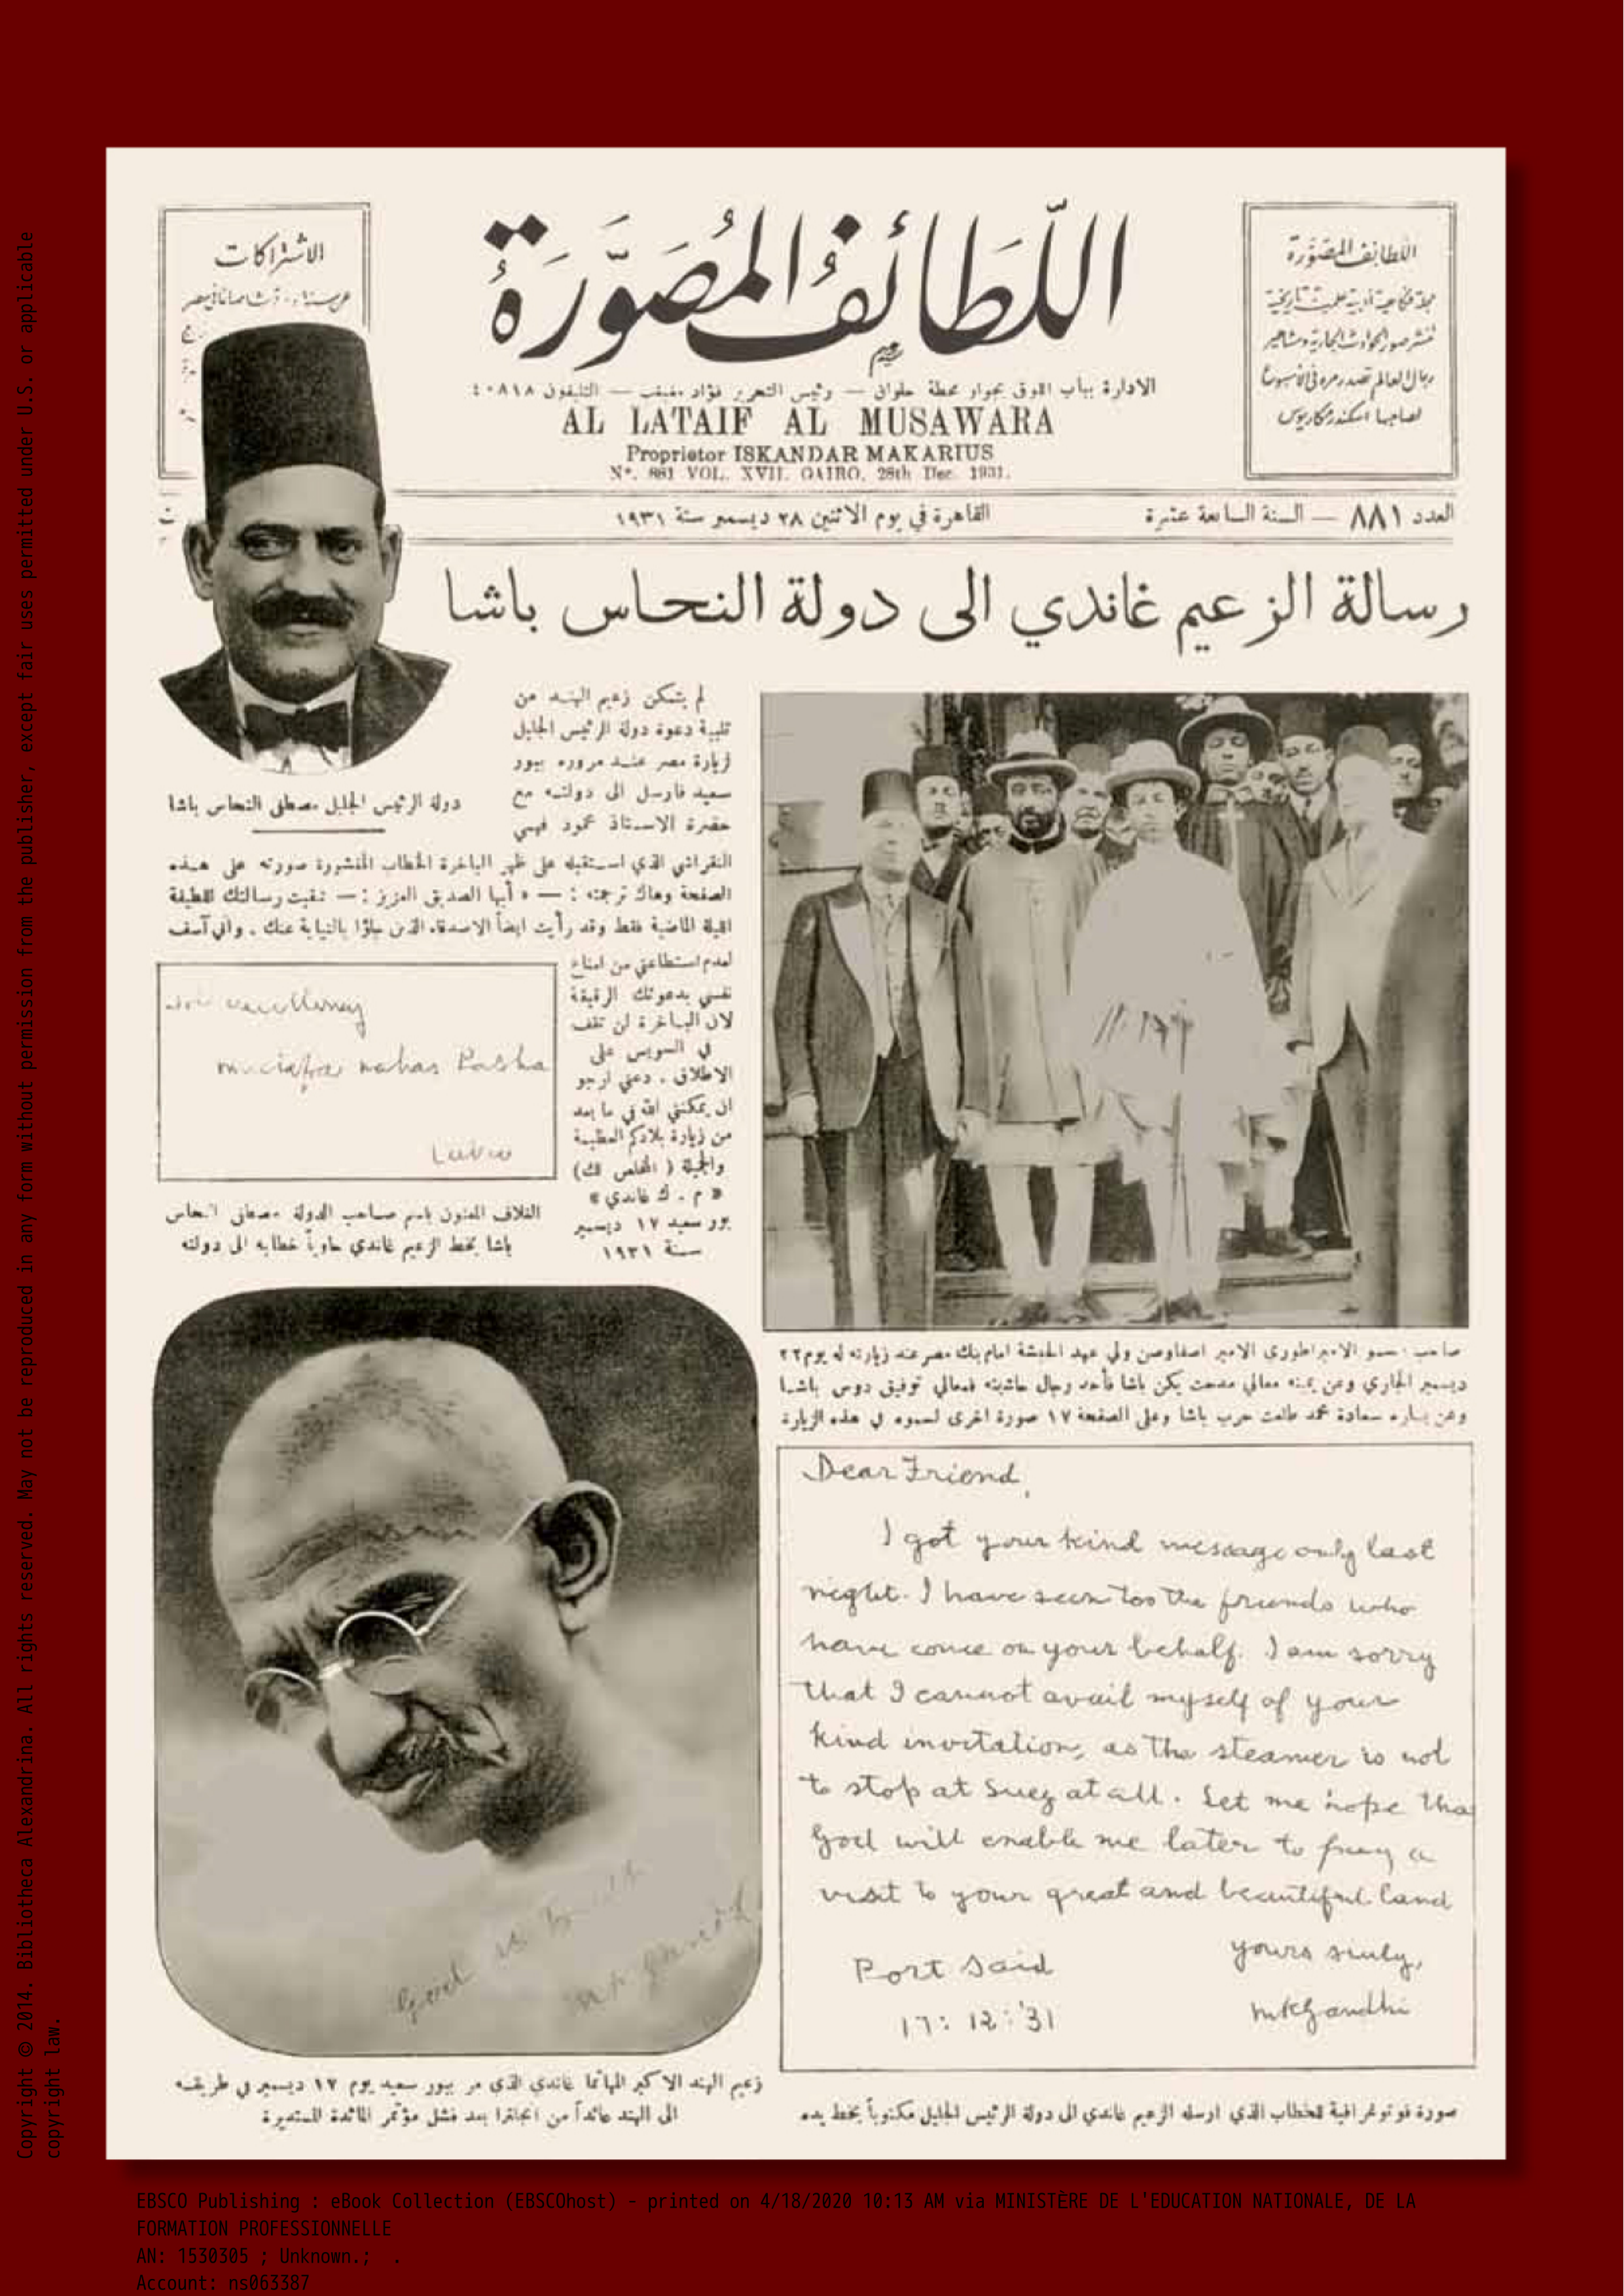 اللطائف المصورة
مجلة فكاهية أدبية علمية تاريخية
تنشر صور الحوادث الجارية ومشاهير
رجال العالم تصدر مرة في الاسبوع
لصاحبها اسكندر مكاريوس
الاشتراكات
اللَّطائف المُصَوَّرَة
الادارة بباب اللوق بجوار محطة حلوان — رئيس التحرير فؤاد مغبغب — التليفون ٤٠٨١٨
AL LATAIF AL MUSAWARA
Proprietor ISKANDAR MAKARIUS
Nº. 881 VOL. XVII. CAIRO, 28th Dec. 1931.
العدد ٨٨١ — السنة السابعة عشرة
القاهرة في يوم الاثنين ٢٨ ديسمبر سنة ١٩٣١
رسالة الزعيم غاندي الى دولة النحاس باشا
دولة الرئيس الجليل مصطفى النحاس باشا
لم يتمكن زعيم الهند من
تلبية دعوة دولة الرئيس الجليل
لزيارة مصر عند مروره ببور
سعيد فارسل الى دولته مع
حضرة الاستاذ محمود فهمي
النقراشي الذي استقبله على ظهر الباخرة الخطاب المنشورة صورته على هذه
الصفحة وهاك ترجمته : — « أيها الصديق العزيز : — تلقيت رسالتك اللطيفة
الليلة الماضية فقط وقد رأيت ايضاً الاصدقاء الذين جاؤا بالنيابة عنك . واني آسف
لعدم استطاعتي من امتاع
نفسي بدعوتك الرقيقة
لان الباخرة لن تقف
في السويس على
الاطلاق . دعني ارجو
ان يمكنني الله في ما بعد
من زيارة بلادكم العظيمة
والجميلة ( المخلص لك)
« م . ك غاندي »
بور سعيد ١٧ ديسمبر
سنة ١٩٣١
excellency
nahas Pasha
Cairo
الغلاف المعنون باسم صاحب الدولة مصطفى النحاس
باشا بخط الزعيم غاندي حاوياً خطابه الى دولته
صاحب السمو الامبراطوري الامير اصفاوصن ولي عهد الحبشة امام بنك مصر عند زيارته له يوم ٢٢
ديسمبر الجاري وعن يمينه معالي مدحت يكن باشا فأحد رجال حاشيته فمعالي توفيق دوس باشا
وعن يساره سعادة محمد طلعت حرب باشا وعلى الصفحة ١٧ صورة اخرى لسموه في هذه الزيارة
Dear Friend,
I got your kind message only last
night. I have seen too the friends who
have come on your behalf. I am sorry
that I cannot avail myself of your
kind invitation, as the steamer is not
to stop at Suez at all. Let me hope tha
God will enable me later to pay a
visit to your great and beautiful land
yours sincerely,
Port Said
MKGandhi
17: 12: '31
God is Truth
MKGandhi
زعيم الهند الاكبر المهاتما غاندي الذي مر ببور سعيد يوم ١٧ ديسمبر في طريقه
الى الهند عائداً من انجلترا بعد فشل مؤتمر المائدة المستديرة
صورة فوتوغرافية للخطاب الذي ارسله الزعيم غاندي الى دولة الرئيس الجليل مكتوباً بخط يده
Copyright © 2014. Bibliotheca Alexandrina. All rights reserved. May not be reproduced in any form without permission from the publisher, except fair uses permitted under U.S. or applicable
copyright law.
EBSCO Publishing : eBook Collection (EBSCOhost) - printed on 4/18/2020 10:13 AM via MINISTÈRE DE L'EDUCATION NATIONALE, DE LA
FORMATION PROFESSIONNELLE
AN: 1530305 ; Unknown.; .
Account: ns063387